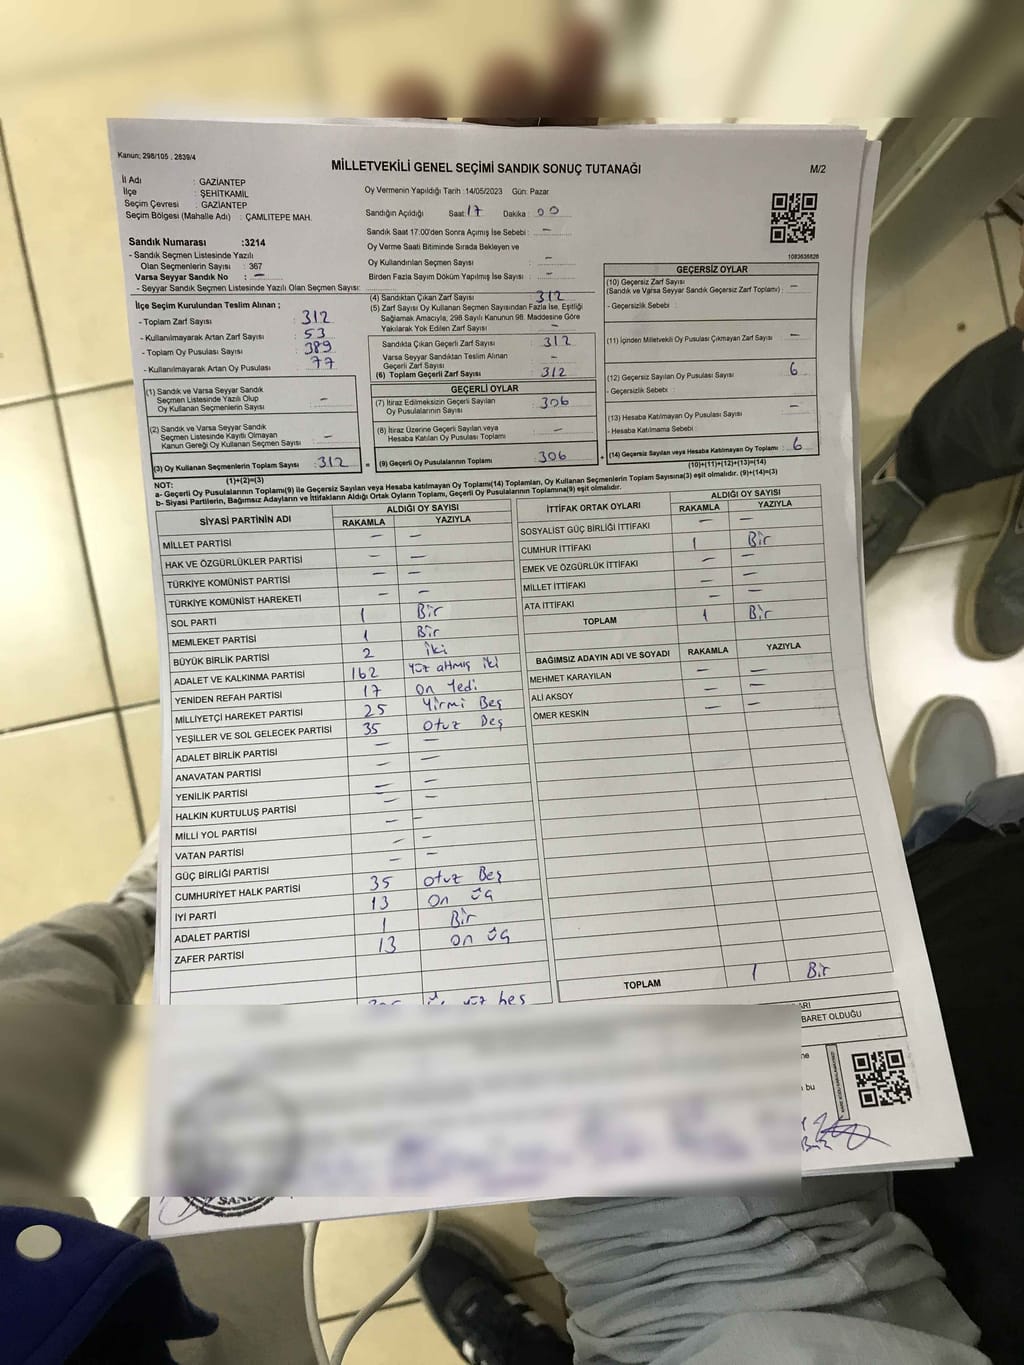 Kanun; 298/105 , 2839/4
MİLLETVEKİLİ GENEL SEÇİMİ SANDIK SONUÇ TUTANAĞI
M/2
İl Adı : GAZİANTEP
İlçe : ŞEHİTKAMİL
Seçim Çevresi : GAZİANTEP
Seçim Bölgesi (Mahalle Adı) : ÇAMLITEPE MAH.
Oy Vermenin Yapıldığı Tarih :14/05/2023 Gün: Pazar
Sandığın Açıldığı Saat: 17 Dakika : 00
Sandık Saat 17:00'den Sonra Açımış İse Sebebi : -
Oy Verme Saati Bitiminde Sırada Bekleyen ve
Oy Kullandırılan Seçmen Sayısı : -
Birden Fazla Sayım Döküm Yapılmış İse Sayısı : -
1083636826
Sandık Numarası :3214
- Sandık Seçmen Listesinde Yazılı
Olan Seçmenlerin Sayısı : 367
Varsa Seyyar Sandık No : -
- Seyyar Sandık Seçmen Listesinde Yazılı Olan Seçmen Sayısı:
İlçe Seçim Kurulundan Teslim Alınan ;
- Toplam Zarf Sayısı : 312
- Kullanılmayarak Artan Zarf Sayısı : 53
- Toplam Oy Pusulası Sayısı : 389
- Kullanılmayarak Artan Oy Pusulası : 77
(1) Sandık ve Varsa Seyyar Sandık
Seçmen Listesinde Yazılı Olup
Oy Kullanan Seçmenlerin Sayısı : -
(2) Sandık ve Varsa Seyyar Sandık
Seçmen Listesinde Kayıtlı Olmayan
Kanun Gereği Oy Kullanan Seçmen Sayısı : -
(3) Oy Kullanan Seçmenlerin Toplam Sayısı : 312
(1)+(2)=(3)
(4) Sandıktan Çıkan Zarf Sayısı : 312
(5) Zarf Sayısı Oy Kullanan Seçmen Sayısından Fazla İse, Eşitliği
Sağlamak Amacıyla, 298 Sayılı Kanunun 98. Maddesine Göre
Yakılarak Yok Edilen Zarf Sayısı : -
Sandıkta Çıkan Geçerli Zarf Sayısı : 312
Varsa Seyyar Sandıktan Teslim Alınan
Geçerli Zarf Sayısı : -
(6) Toplam Geçerli Zarf Sayısı : 312
GEÇERLİ OYLAR
(7) İtiraz Edilmeksizin Geçerli Sayılan
Oy Pusulalarının Sayısı : 306
(8) İtiraz Üzerine Geçerli Sayılan veya
Hesaba Katılan Oy Pusulası Toplamı : -
= (9) Geçerli Oy Pusulalarının Toplamı : 306
GEÇERSİZ OYLAR
(10) Geçersiz Zarf Sayısı
(Sandık ve Varsa Seyyar Sandık Geçersiz Zarf Toplamı) : -
- Geçersizlik Sebebi :
(11) İçinden Milletvekili Oy Pusulası Çıkmayan Zarf Sayısı : -
(12) Geçersiz Sayılan Oy Pusulası Sayısı : 6
- Geçersizlik Sebebi :
(13) Hesaba Katılmayan Oy Pusulası Sayısı : -
- Hesaba Katılmama Sebebi :
+ (14) Geçersiz Sayılan veya Hesaba Katılmayan Oy Toplamı : 6
(10)+(11)+(12)+(13)=(14)
NOT:
a- Geçerli Oy Pusulalarının Toplamı(9) ile Geçersiz Sayılan veya Hesaba Katılmayan Oy Toplamı(14) Toplamları, Oy Kullanan Seçmenlerin Toplam Sayısına(3) eşit olmalıdır. (9)+(14)=(3)
b- Siyasi Partilerin, Bağımsız Adayların ve İttifakların Aldığı Ortak Oyların Toplamı, Geçerli Oy Pusulalarının Toplamına(9) eşit olmalıdır.
SİYASİ PARTİNİN ADI ALDIĞI OY SAYISI
RAKAMLA YAZIYLA
MİLLET PARTİSİ - -
HAK VE ÖZGÜRLÜKLER PARTİSİ - -
TÜRKİYE KOMÜNİST PARTİSİ - -
TÜRKİYE KOMÜNİST HAREKETİ - -
SOL PARTİ 1 Bir
MEMLEKET PARTİSİ 1 Bir
BÜYÜK BİRLİK PARTİSİ 2 iki
ADALET VE KALKINMA PARTİSİ 162 Yüz altmış iki
YENİDEN REFAH PARTİSİ 17 on Yedi
MİLLİYETÇİ HAREKET PARTİSİ 25 Yirmi Beş
YEŞİLLER VE SOL GELECEK PARTİSİ 35 otuz Beş
ADALET BİRLİK PARTİSİ - -
ANAVATAN PARTİSİ - -
YENİLİK PARTİSİ - -
HALKIN KURTULUŞ PARTİSİ - -
MİLLİ YOL PARTİSİ - -
VATAN PARTİSİ - -
GÜÇ BİRLİĞİ PARTİSİ - -
CUMHURİYET HALK PARTİSİ 35 otuz Beş
İYİ PARTİ 13 on üç
ADALET PARTİSİ 1 Bir
ZAFER PARTİSİ 13 on üç
yüz beş
İTTİFAK ORTAK OYLARI ALDIĞI OY SAYISI
RAKAMLA YAZIYLA
SOSYALİST GÜÇ BİRLİĞİ İTTİFAKI - -
CUMHUR İTTİFAKI 1 Bir
EMEK VE ÖZGÜRLÜK İTTİFAKI - -
MİLLET İTTİFAKI - -
ATA İTTİFAKI - -
TOPLAM 1 Bir
BAĞIMSIZ ADAYIN ADI VE SOYADI RAKAMLA YAZIYLA
MEHMET KARAYILAN - -
ALİ AKSOY - -
ÖMER KESKİN - -
TOPLAM 1 Bir
BARET OLDUĞU
bu